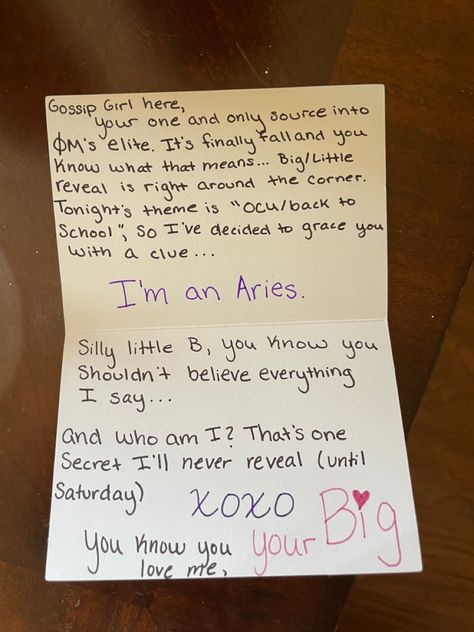 Gossip Girl here,
your one and only source into
ΦM's elite. It's finally fall and you
know what that means... Big/Little
reveal is right around the corner.
Tonight's theme is "OCU/back to
School", so I've decided to grace you
with a clue...
I'm an Aries.
Silly little B, you know you
shouldn't believe everything
I say...
And who am I? That's one
secret I'll never reveal (until
Saturday)
XOXO
You know you
love me,
your Big